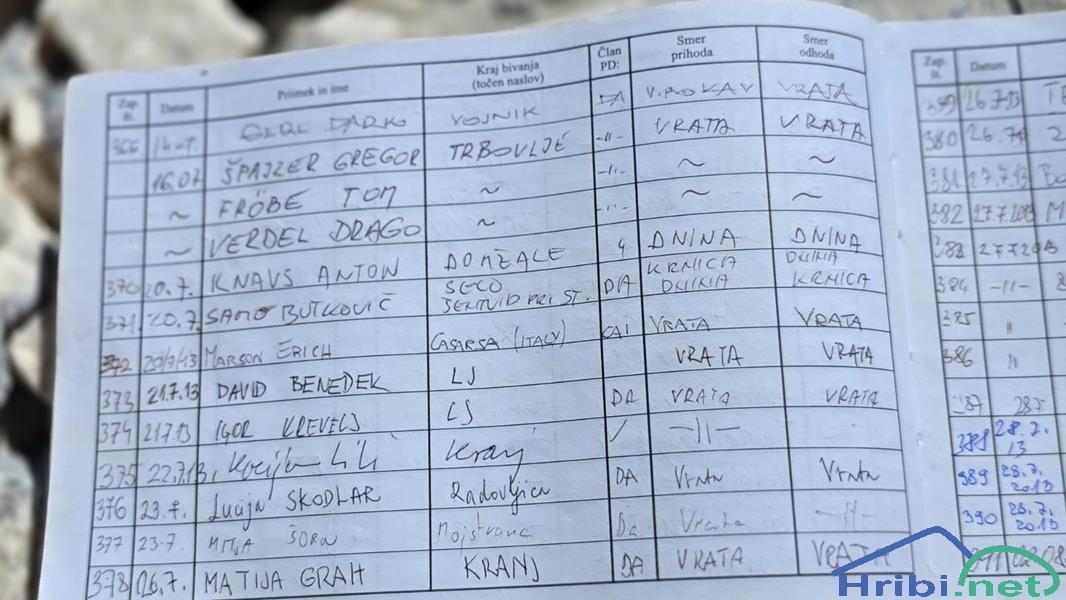 Zap. št. Datum Priimek in ime Kraj bivanja (točen naslov) Član PD: Smer prihoda Smer odhoda
366 DARKO VOJNIK DA VRATA
16.07 ŠPAJZER GREGOR TRBOVLJE -11- VRATA VRATA
~ FRÖBE TOM ~ -11- ~ ~
~ VERDEL DRAGO ~ -11- ~ ~
370 20.7. KNAVS ANTON DOMŽALE DNINA DNINA
371 20.7. SAMO BUTKOVIČ ŠENTVID PRI ST. DA KRNICA DNINA DNINA KRNICA
372 20/7/13 MARSON ERICH CASARSA (ITALY) CAI VRATA VRATA
373 21.7.13 DAVID BENEDEK LJ VRATA VRATA
374 21.7.13 IGOR KREVELJ LJ DA VRATA VRATA
375 22.7.13. Kranj / -11-
376 23.7. Lucija ŠKODLAR Radovljica DA Vrata Vrata
377 23.7. MITJA ŠORN Mojstrana Da Vrata -11-
378 26.7. MATIJA GRAH KRANJ DA VRATA VRATA
Zap. št. Datum
379 26.7.13 TE
380 26.7.
381 27.7.13
382 27.7.2013 M
384 -11-
385 11
386 11
387 28.7
388 28.7. 13
389 28.7. 2013
390 28.7. 2013
Hribi.net